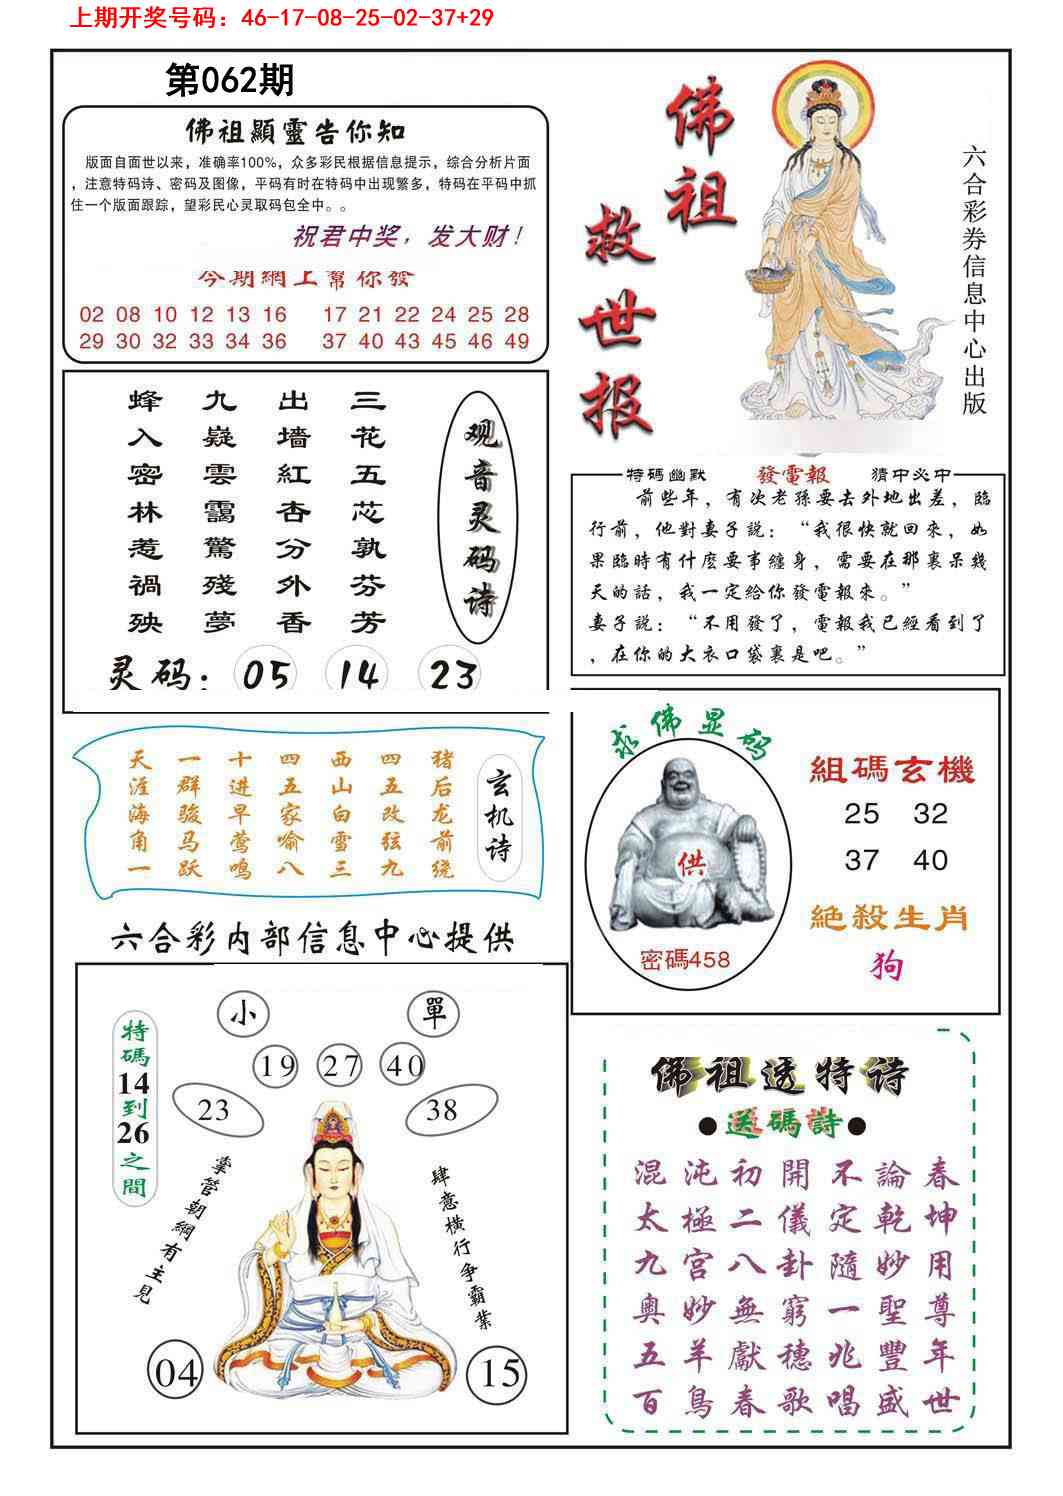 上期开奖号码：46-17-08-25-02-37+29
第062期
佛祖顯靈告你知
版面自面世以来，准确率100%，众多彩民根据信息提示，综合分析片面
，注意特码诗、密码及图像，平码有时在特码中出现繁多，特码在平码中抓
住一个版面跟踪，望彩民心灵取码包全中。。
祝君中奖，发大财！
今期網上幫你發
02 08 10 12 13 16 17 21 22 24 25 28
29 30 32 33 34 36 37 40 43 45 46 49
佛祖
救世报
六合彩券信息中心出版
观音灵码诗
三花五芯孰芬芳
出墙紅杏分外香
九嶷雲靄驚殘夢
蜂入密林惹禍殃
灵码：05 14 23
特碼幽默 發電報 猜中必中
前些年，有次老孫要去外地出差，臨
行前，他對妻子説：“我很快就回來，如
果臨時有什麽要事纏身，需要在那裏呆幾
天的話，我一定給你發電報來。”
妻子説：“不用發了，電報我已經看到了
，在你的大衣口袋裏是吧。”
玄机诗
猪后龙前绕
四五改弦九
西山白雪三
四五家喻八
十进早莺鸣
一群骏马跃
天涯海角一
求佛显码
供
密碼458
組碼玄機
25 32
37 40
絶殺生肖
狗
六合彩内部信息中心提供
特碼14到26之間
小 單
19 27 40
23 38
掌管朝綱有主見
肆意橫行爭霸業
04 15
佛祖透特诗
●送碼詩●
混沌初開不論春
太極二儀定乾坤
九宮八卦隨妙用
奧妙無窮一聖尊
五羊獻穗兆豐年
百鳥春歌唱盛世